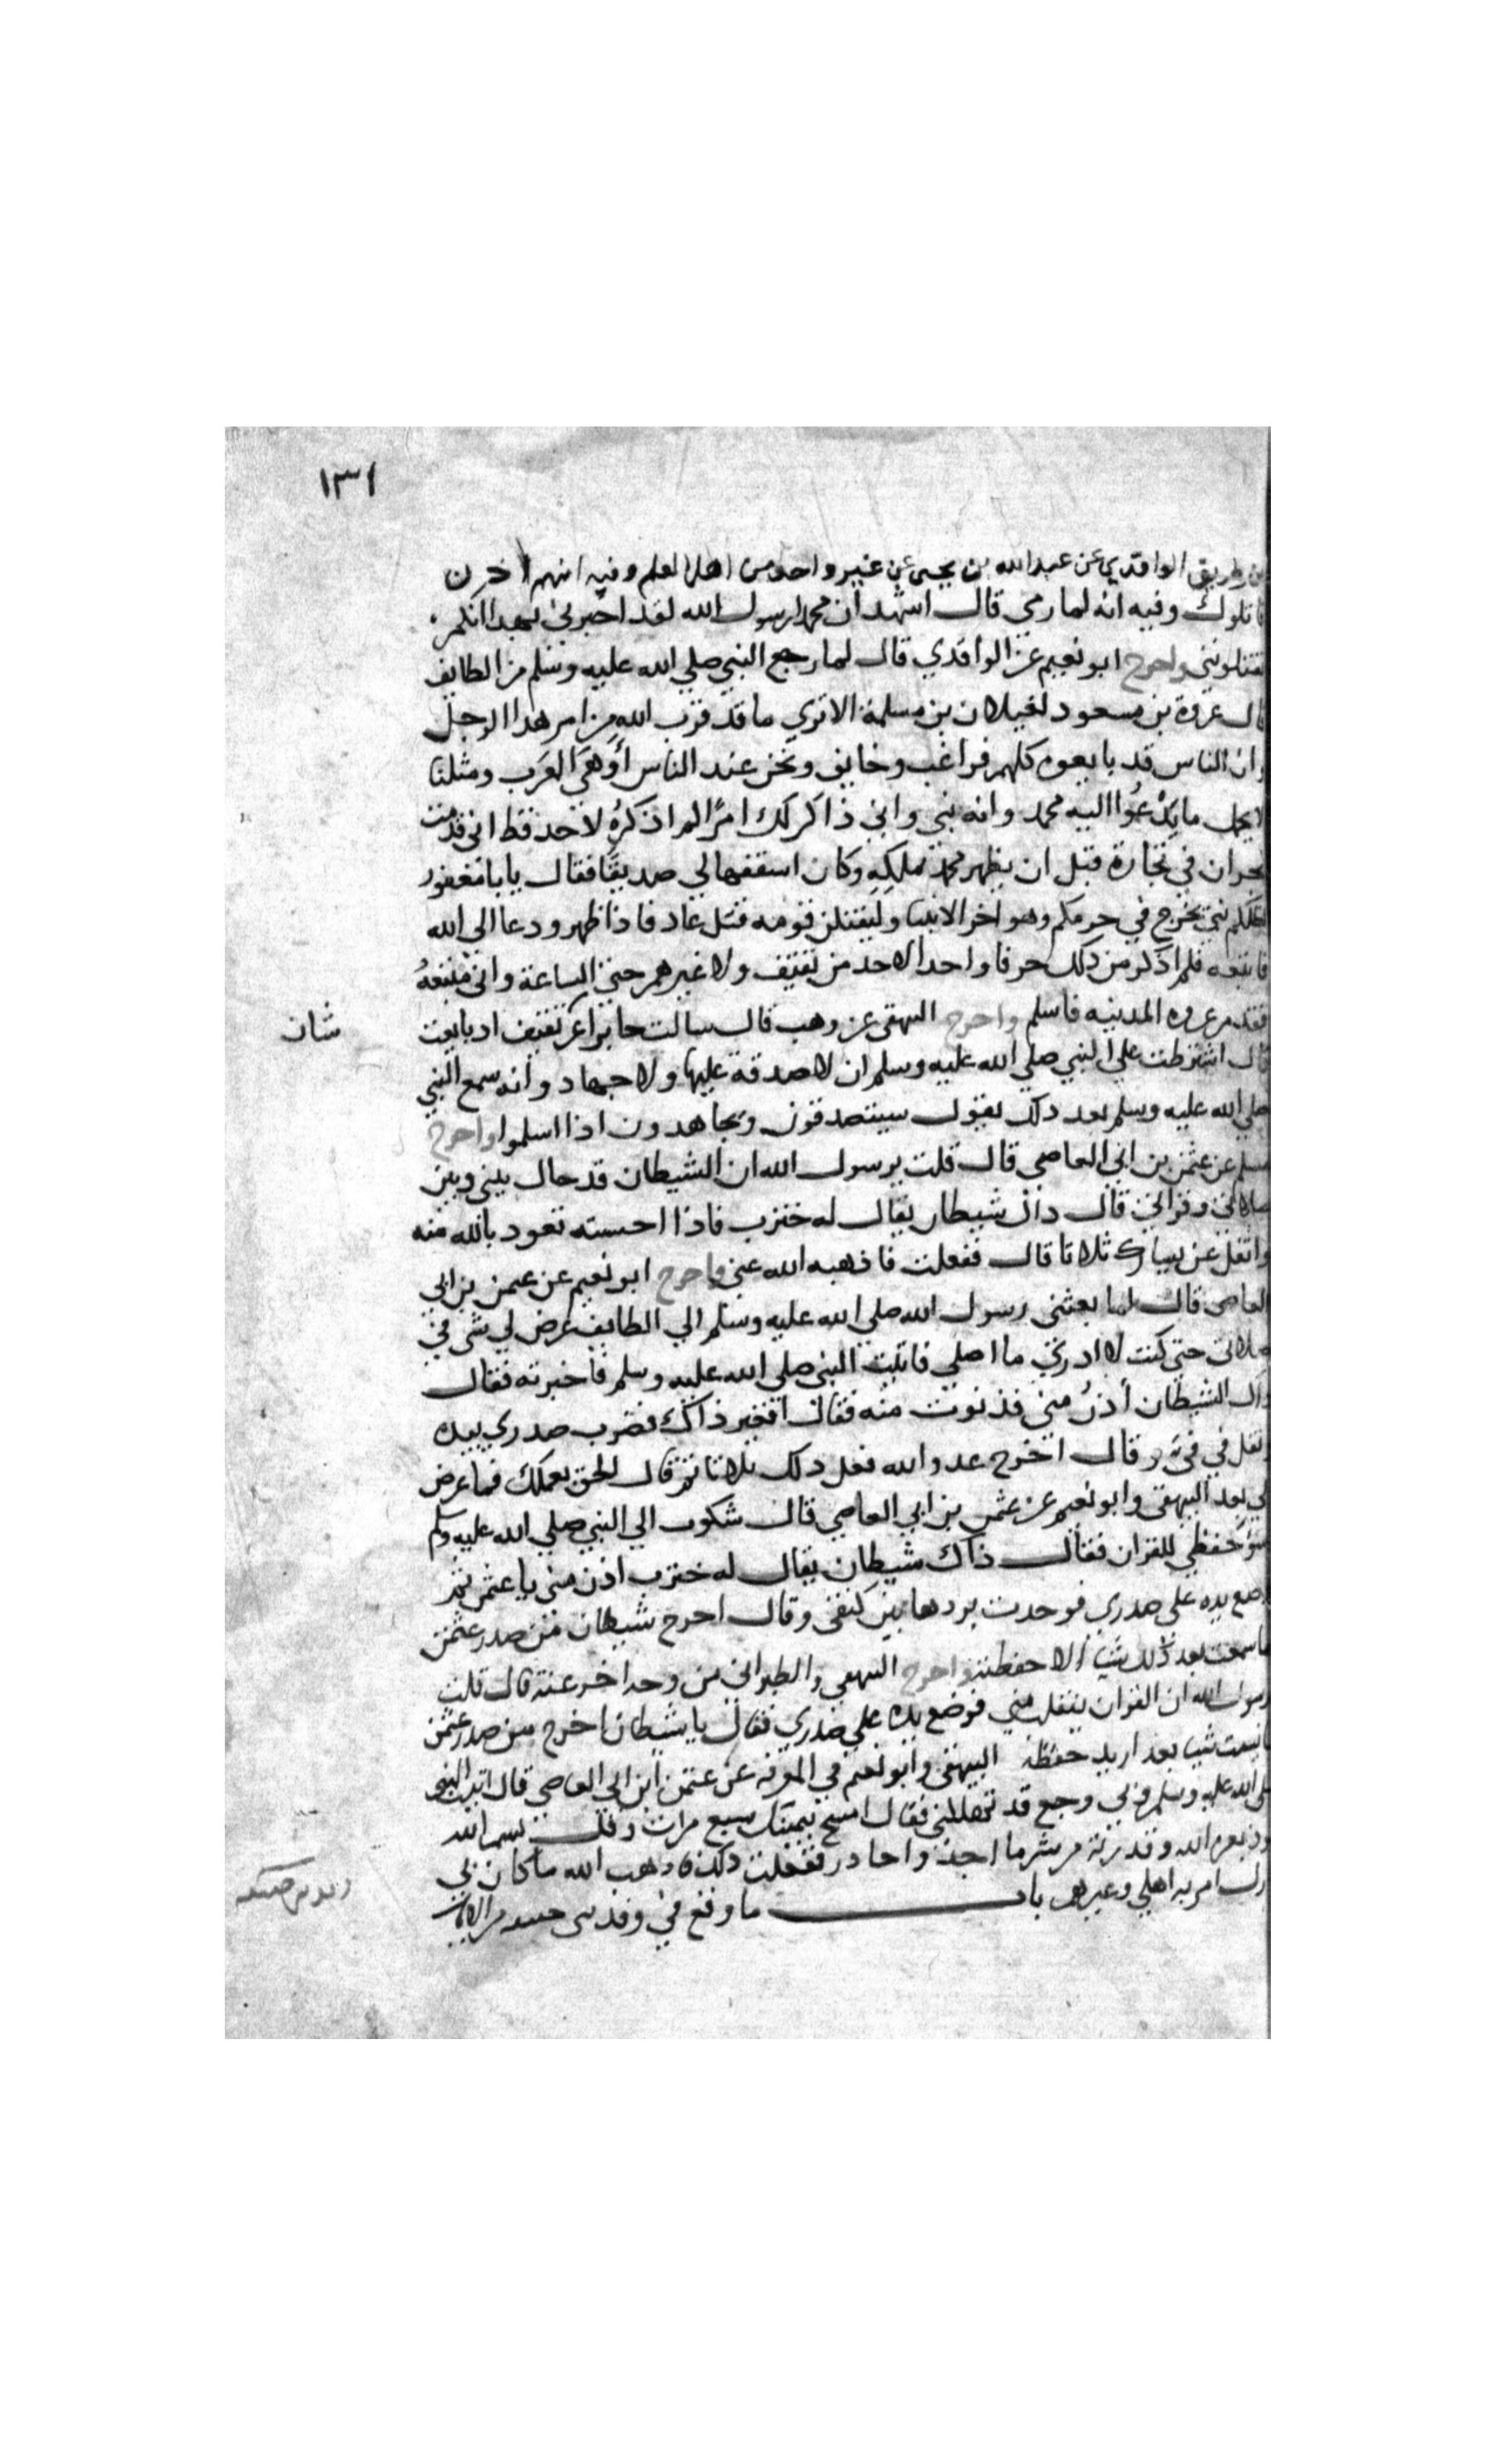 ١٣١
من طريق الواقدي عن عبد الله بن يحيى عن غير واحد من اهل العلم وفيه انهم اذن
قاتلوك وفيه انه لما رمي قال اشهد ان محمدا رسول الله لقد اخبرني بهذا انكم
تقتلونني واخرج ابو نعيم عن الواقدي قال لما رجع النبي صلي الله عليه وسلم من الطايف
قال عروة بن مسعود لغيلان بن مسلمة الا تري ما قد قرب الله من امر هذا الرجل
وان الناس قد بايعوه كلهم فراغب وخايف ونحن عند الناس أوهى العرب ومثلنا
لا يجهل ما يدعوا اليه محمد وانه نبي واني ذاكر لك امرًا لم اذكره لاحد قط اني قدمت
نجران في تجارة قبل ان يظهر محمد بملكه وكان اسقفها لي صديقًا فقال يا با معفور
اظلكم نبي يخرج في حرمكم وهو اخر الانبيا وليقتلن قومه قتل عاد فاذا ظهر ودعا الي الله
فاتبعه فلم اذكر من ذلك حرفا واحدا لاحد من ثقيف ولا غيرهم حتي الساعة واني متبعهُ
فقدم عروه المدينه فاسلم واخرج البيهقي عن وهب قال سالت جابرا عن ثقيف اذ بايعت
شان
قال اشترطت علي النبي صلي الله عليه وسلم ان لا صدقة عليها ولا جهاد وانه سمع النبي
صلي الله عليه وسلم بعد ذلك يقول سيتصدقون ويجاهدون اذا اسلموا واخرج
مسلم عن عثمن بن ابي العاصي قال قلت يرسول الله ان الشيطان قد حال بيني وبين
صلاتي وقراتي قال ذاك شيطان يقال له خنزب فاذا احسسته تعوذ بالله منه
واتفل عن يسارك ثلاثا قال ففعلت فاذهبه الله عني واخرج ابو نعيم عن عثمن بن ابي
العاصي قال لما بعثني رسول الله صلي الله عليه وسلم الي الطايف عرض لي شي في
صلاتي حتي كنت لا ادري ما اصلي فاتيت النبي صلي الله عليه وسلم فاخبرته فقال
ذاك الشيطان أدنُ مني فدنوت منه فقال افغر فاك فضرب صدري بيده
وتفل في في وقال اخرج عدو الله فعل ذلك ثلاثا ثم قال الحق بعملك فما عرض
لي بعد البيهقي وابو نعيم عن عثمن بن ابي العاصي قال شكوت الي النبي صلي الله عليه وسلم
سؤ حفظي للقران فقال ذاك شيطان يقال له خنزب ادن مني يا عثمن ثم
وضع يده علي صدري فوجدت بردها بين كتفي وقال اخرج شيطان من صدر عثمن
فما سمعت بعد ذلك شيا الا حفظته واخرج البيهقي والطبراني من وجه اخر عنه قال قلت
يرسول الله ان القران يتفلت مني فوضع يده علي صدري فقال يا شيطان اخرج من صدر عثمن
فما نسيت شيا بعد اريد حفظه البيهقي وابو نعيم في المعرفه عن عثمن ابن ابي العاصي قال اتيت النبي
صلي الله عليه وسلم وبي وجع قد فقال امسح بيمينك سبع مرات وقل بسم الله
اعوذ بعزة الله وقدرته من شر ما اجد واحاذر ففعلت ذلك فاذهب الله ما كان بي
ازل امر به اهلي وغيرهم باب ما وقع في وفد بني حنيفه من الايات
وفد بني حنيفه